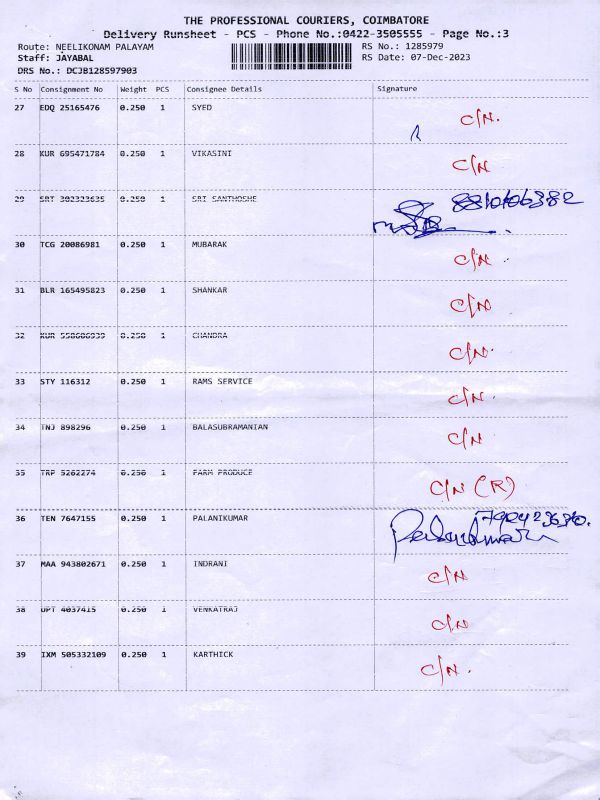 THE PROFESSIONAL COURIERS, COIMBATORE
Delivery Runsheet - PCS - Phone No.:0422-3505555 - Page No.:3
Route: NEELIKONAM PALAYAM RS No.: 1285979
Staff: JAYABAL RS Date: 07-Dec-2023
DRS No.: DCJB128597903
S No Consignment No Weight PCS Consignee Details Signature
27 EDQ 25165476 0.250 1 SYED C/N.
28 KUR 695471784 0.250 1 VIKASINI C/N
29 SRT 302323635 0.250 1 SRI SANTHOSHE
30 TCG 20086981 0.250 1 MUBARAK C/N.
31 BLR 165495823 0.250 1 SHANKAR C/N
32 KUR 0.250 1 CHANDRA C/N.
33 STY 116312 0.250 1 RAMS SERVICE C/N.
34 TNJ 898296 0.250 1 BALASUBRAMANIAN C/N.
35 TRP 5262274 0.250 1 FARM PRODUCE C/N (R)
36 TEN 7647155 0.250 1 PALANIKUMAR
37 MAA 943802671 0.250 1 INDRANI C/N
38 UPT 4037415 0.250 1 VENKATRAJ C/N
39 IXM 505332109 0.250 1 KARTHICK C/N.